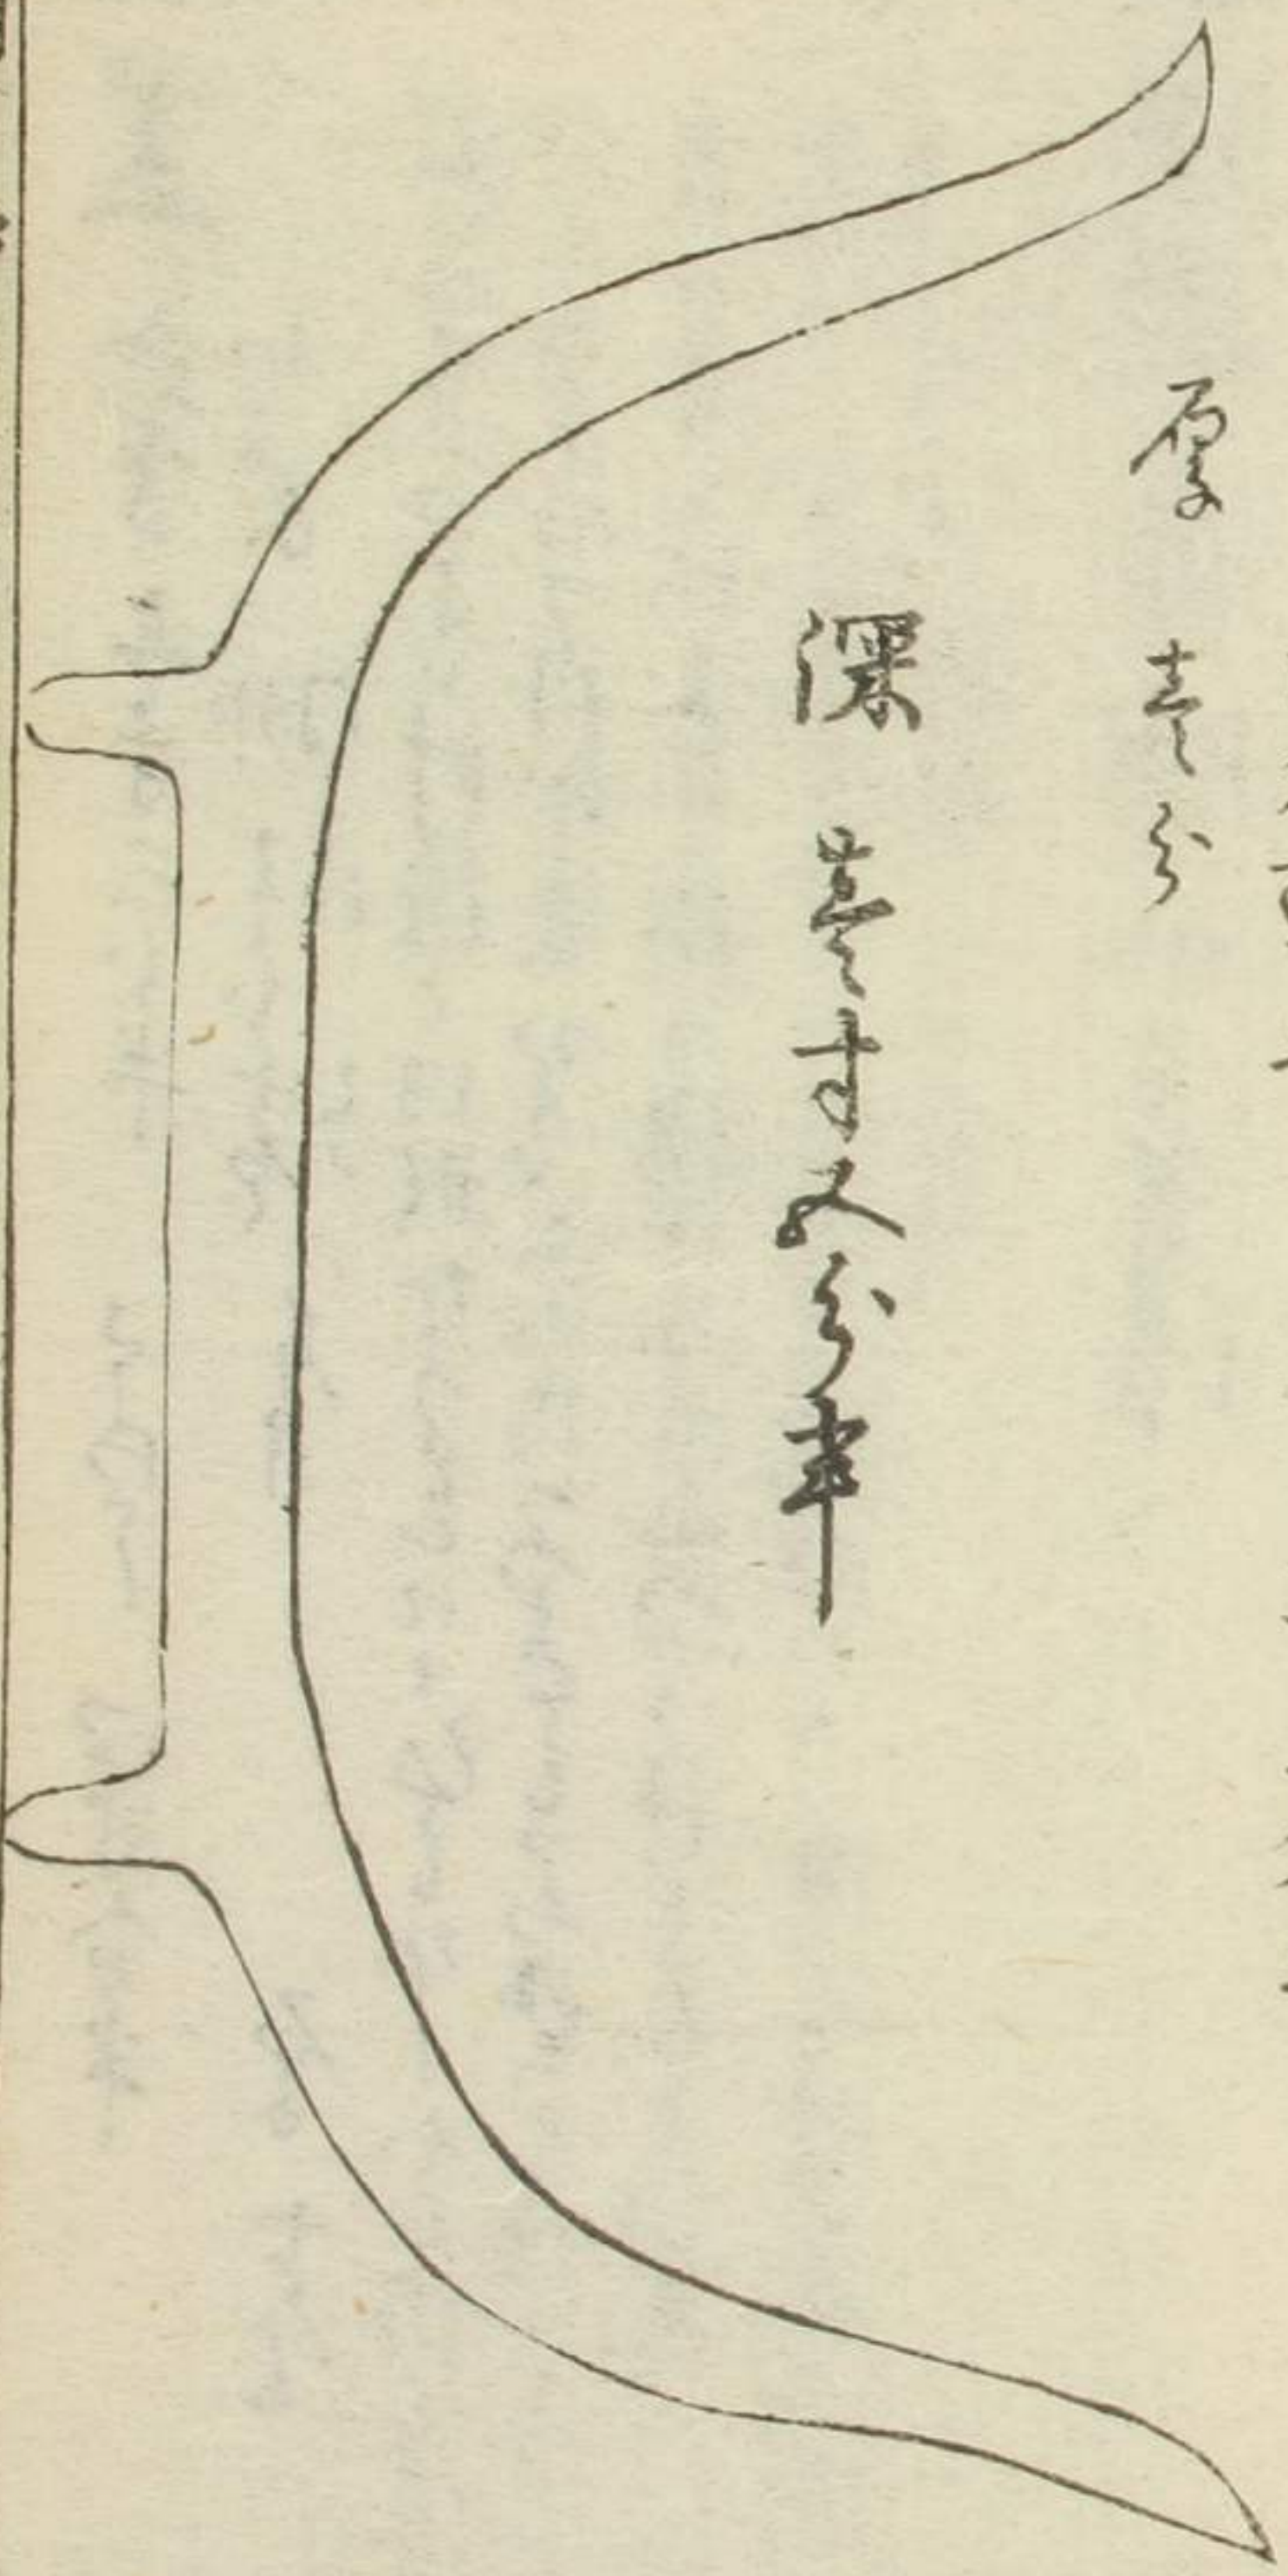 厚 壱分
深 壱寸五分半